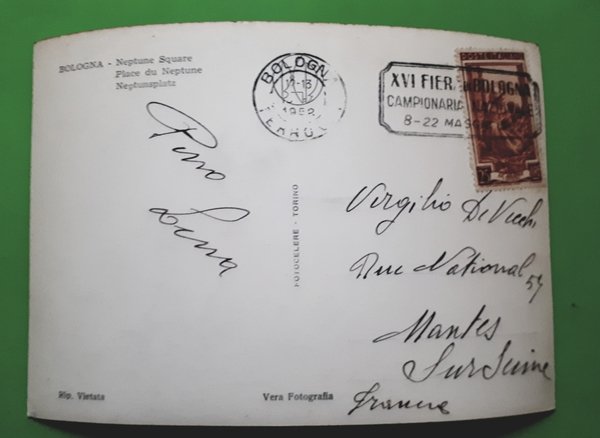 BOLOGNA - Neptune Square
Place du Neptune
Neptunsplatz
Pino
Lina
FOTOCELERE - TORINO
BOLOGNA
FERROV
XVI FIERA BOLOGNA
CAMPIONARIA
8-22 MAGG
POSTE ITALIANE
Virgilio De Vecchi
Rue National 57
Mantes
Sur Seine
France
Rip. Vietata
Vera Fotografia